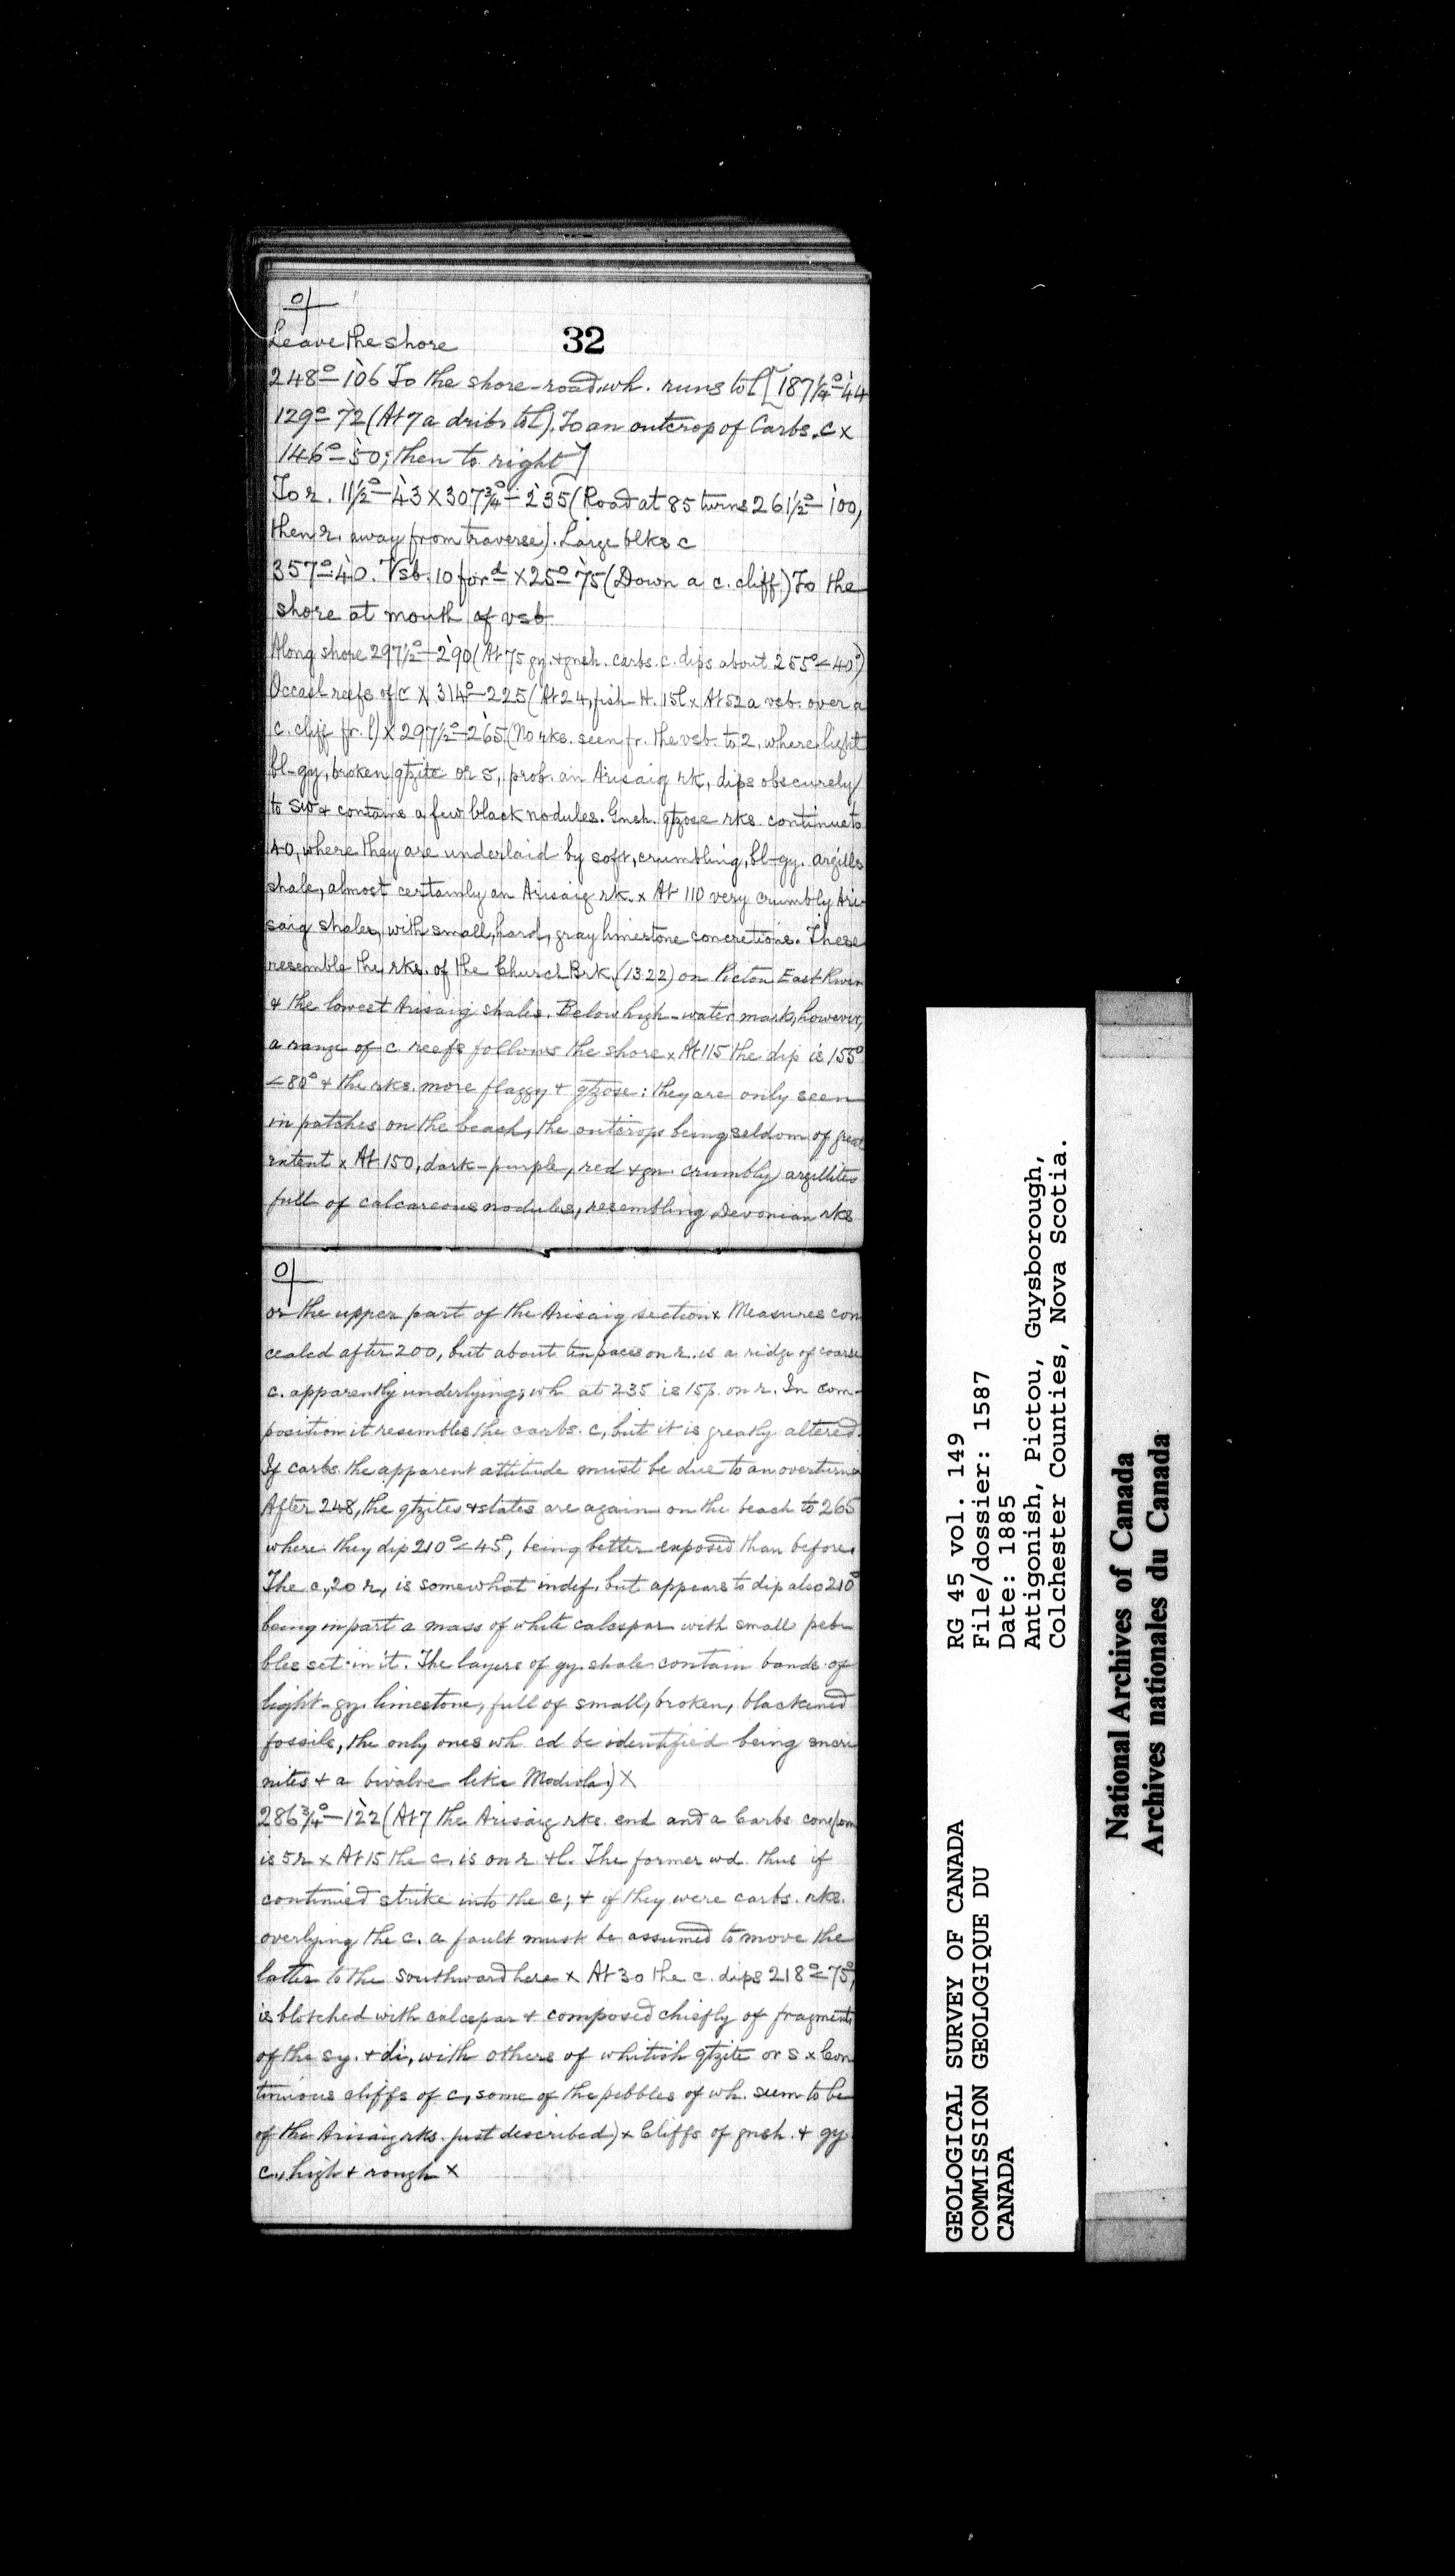 32
Leave the shore
248°–106 To the shore-road wh. runs to l [187¼°–44
129°–72 (At 7 a drib. to l). To an outcrop of Carbs. c x
146°–50; then to right]
To r. 11½°–43 x 307¾°–235 (Road at 85 turns 261½°–100,
then r. away from traverse). Large blks c
357°–40. Vsb. 10 for d x 25°–75 (Down a c. cliff) To the
shore at mouth of vsb
Along shore 297½°–290 (At 75 gy. & gnsh. carbs. c. dips about 255°<40°)
Occasl reefs of c x 314°–225 (At 24, fish-H. 15l x At 52 a vsb. over a
c. cliff fr. l) x 297½°–265 (No rks. seen fr. the vsb. to 2, where light
bl-gy, broken qtzite or s, prob. an Arisaig rk, dips obscurely
to SW & contains a few black nodules. Gnsh. qtzose rks. continue to
40, where they are underlaid by soft, crumbling, bl-gy. argills
shale, almost certainly an Arisaig rk. x At 110 very crumbly Ari-
saig shales, with small, hard, gray limestone concretions. These
resemble the rks. of the Church Brk. (13.22) on Pictou East River
& the lowest Arisaig shales. Below high-water mark, however,
a range of c. reefs follows the shore x At 115 the dip is 155°
<80° & the rks. more flaggy & qtzose: they are only seen
in patches on the beach, the outcrops being seldom of great
extent x At 150, dark-purple, red & gn. crumbly argillites
full of calcareous nodules, resembling Devonian rks
or the upper part of the Arisaig section x Measures con
cealed after 200, but about ten paces on r. is a ridge of coarse
c. apparently underlying, wh at 235 is 15p. on r. In com-
position it resembles the carbs. c, but it is greatly altered.
If carbs. the apparent attitude must be due to an overturn
After 248, the qtzites & slates are again on the beach to 265
where they dip 210°<45°, being better exposed than before.
The c, 20 r, is somewhat indef. but appears to dip also 210°
being in part a mass of white calcspar with small peb-
bles set in it. The layers of gy. shale contain bands of
light-gy. limestone, full of small, broken, blackened
fossils, the only ones wh cd be identified being encri
nites & a bivalve like Modiola) x
286¾°–122 (At 7 the Arisaig rks. end and a Carbs conglom
is 5r x At 15 the c. is on r. & l. The former wd. thus if
continued strike into the c; & if they were carbs. rks.
overlying the c. a fault must be assumed to move the
latter to the southward here x At 30 the c. dips 218°<75°,
is blotched with calcspar & composed chiefly of fragments
of the sy. & di, with others of whitish qtzite or s x Con
tinuous cliffs of c, some of the pebbles of wh. seem to be
of the Arisaig rks. just described) x Cliffs of gnsh. & gy
c., high & rough x
GEOLOGICAL SURVEY OF CANADA
COMMISSION GEOLOGIQUE DU
CANADA
RG 45 vol. 149
File/dossier: 1587
Date: 1885
Antigonish, Pictou, Guysborough,
Colchester Counties, Nova Scotia.
National Archives of Canada
Archives nationales du Canada